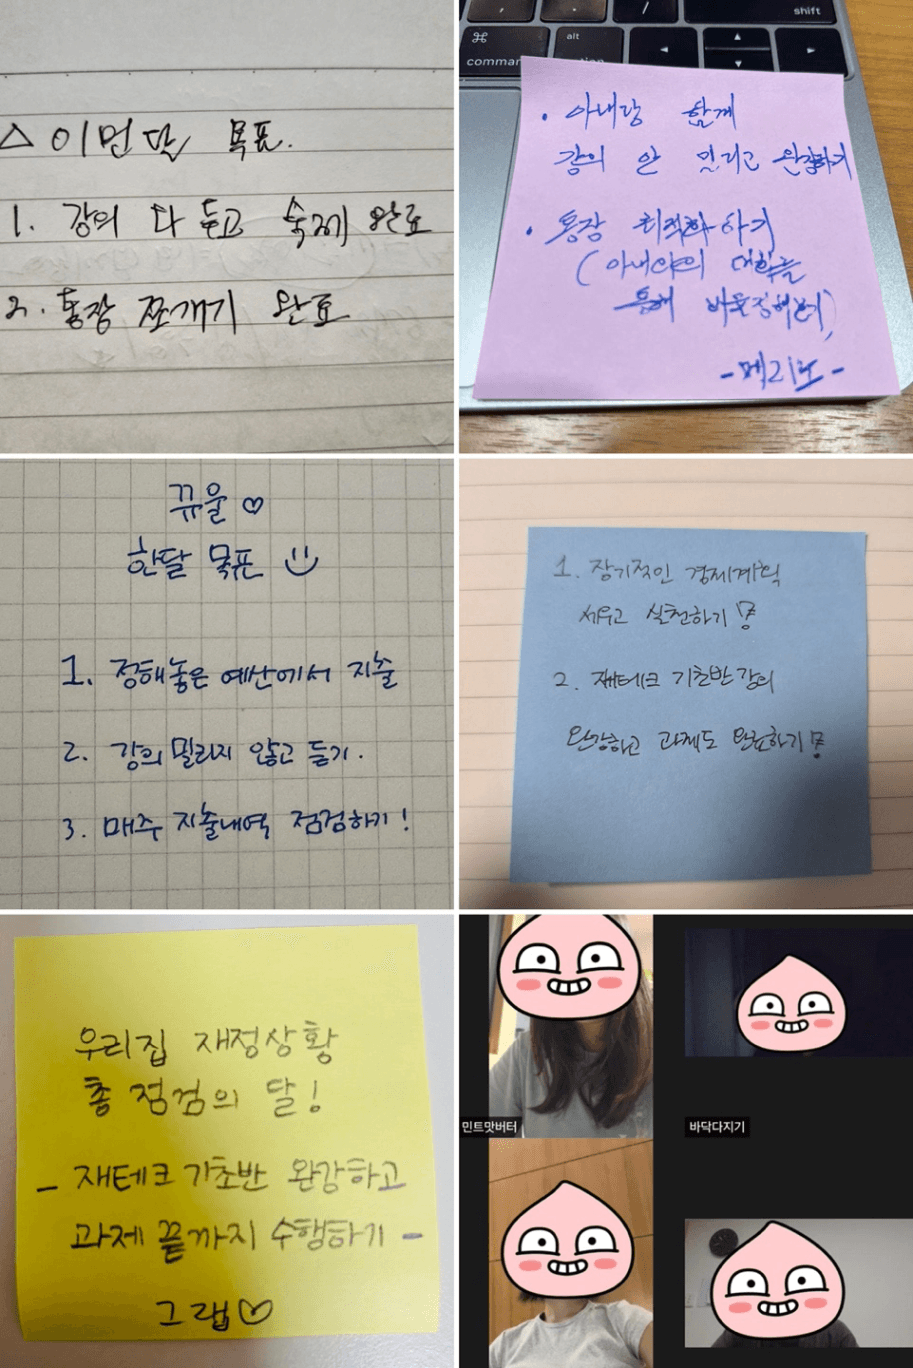 △ 이번달 목표.
1. 강의 다 듣고 숙제 완료
2. 통장 쪼개기 완료
shift
< > ? /
⌘ alt
command option
• 아내랑 함께
강의 안 밀리고 완강하기
• 통장 최적화하기
(아내와의 대화를
통해 바운더리)
- 메리노 -
뀨울 ♡
한달 목표
1. 정해놓은 예산에서 지출
2. 강의 밀리지 않고 듣기.
3. 매주 지출내역 점검하기!
1. 장기적인 경제계획
세우고 실천하기!
2. 재테크 기초반 강의
완강하고 과제도 완료하기!
우리집 재정상황
총 점검의 달!
- 재테크 기초반 완강하고
과제 끝까지 수행하기 -
그랩♡
민트맛버터
바닥다지기